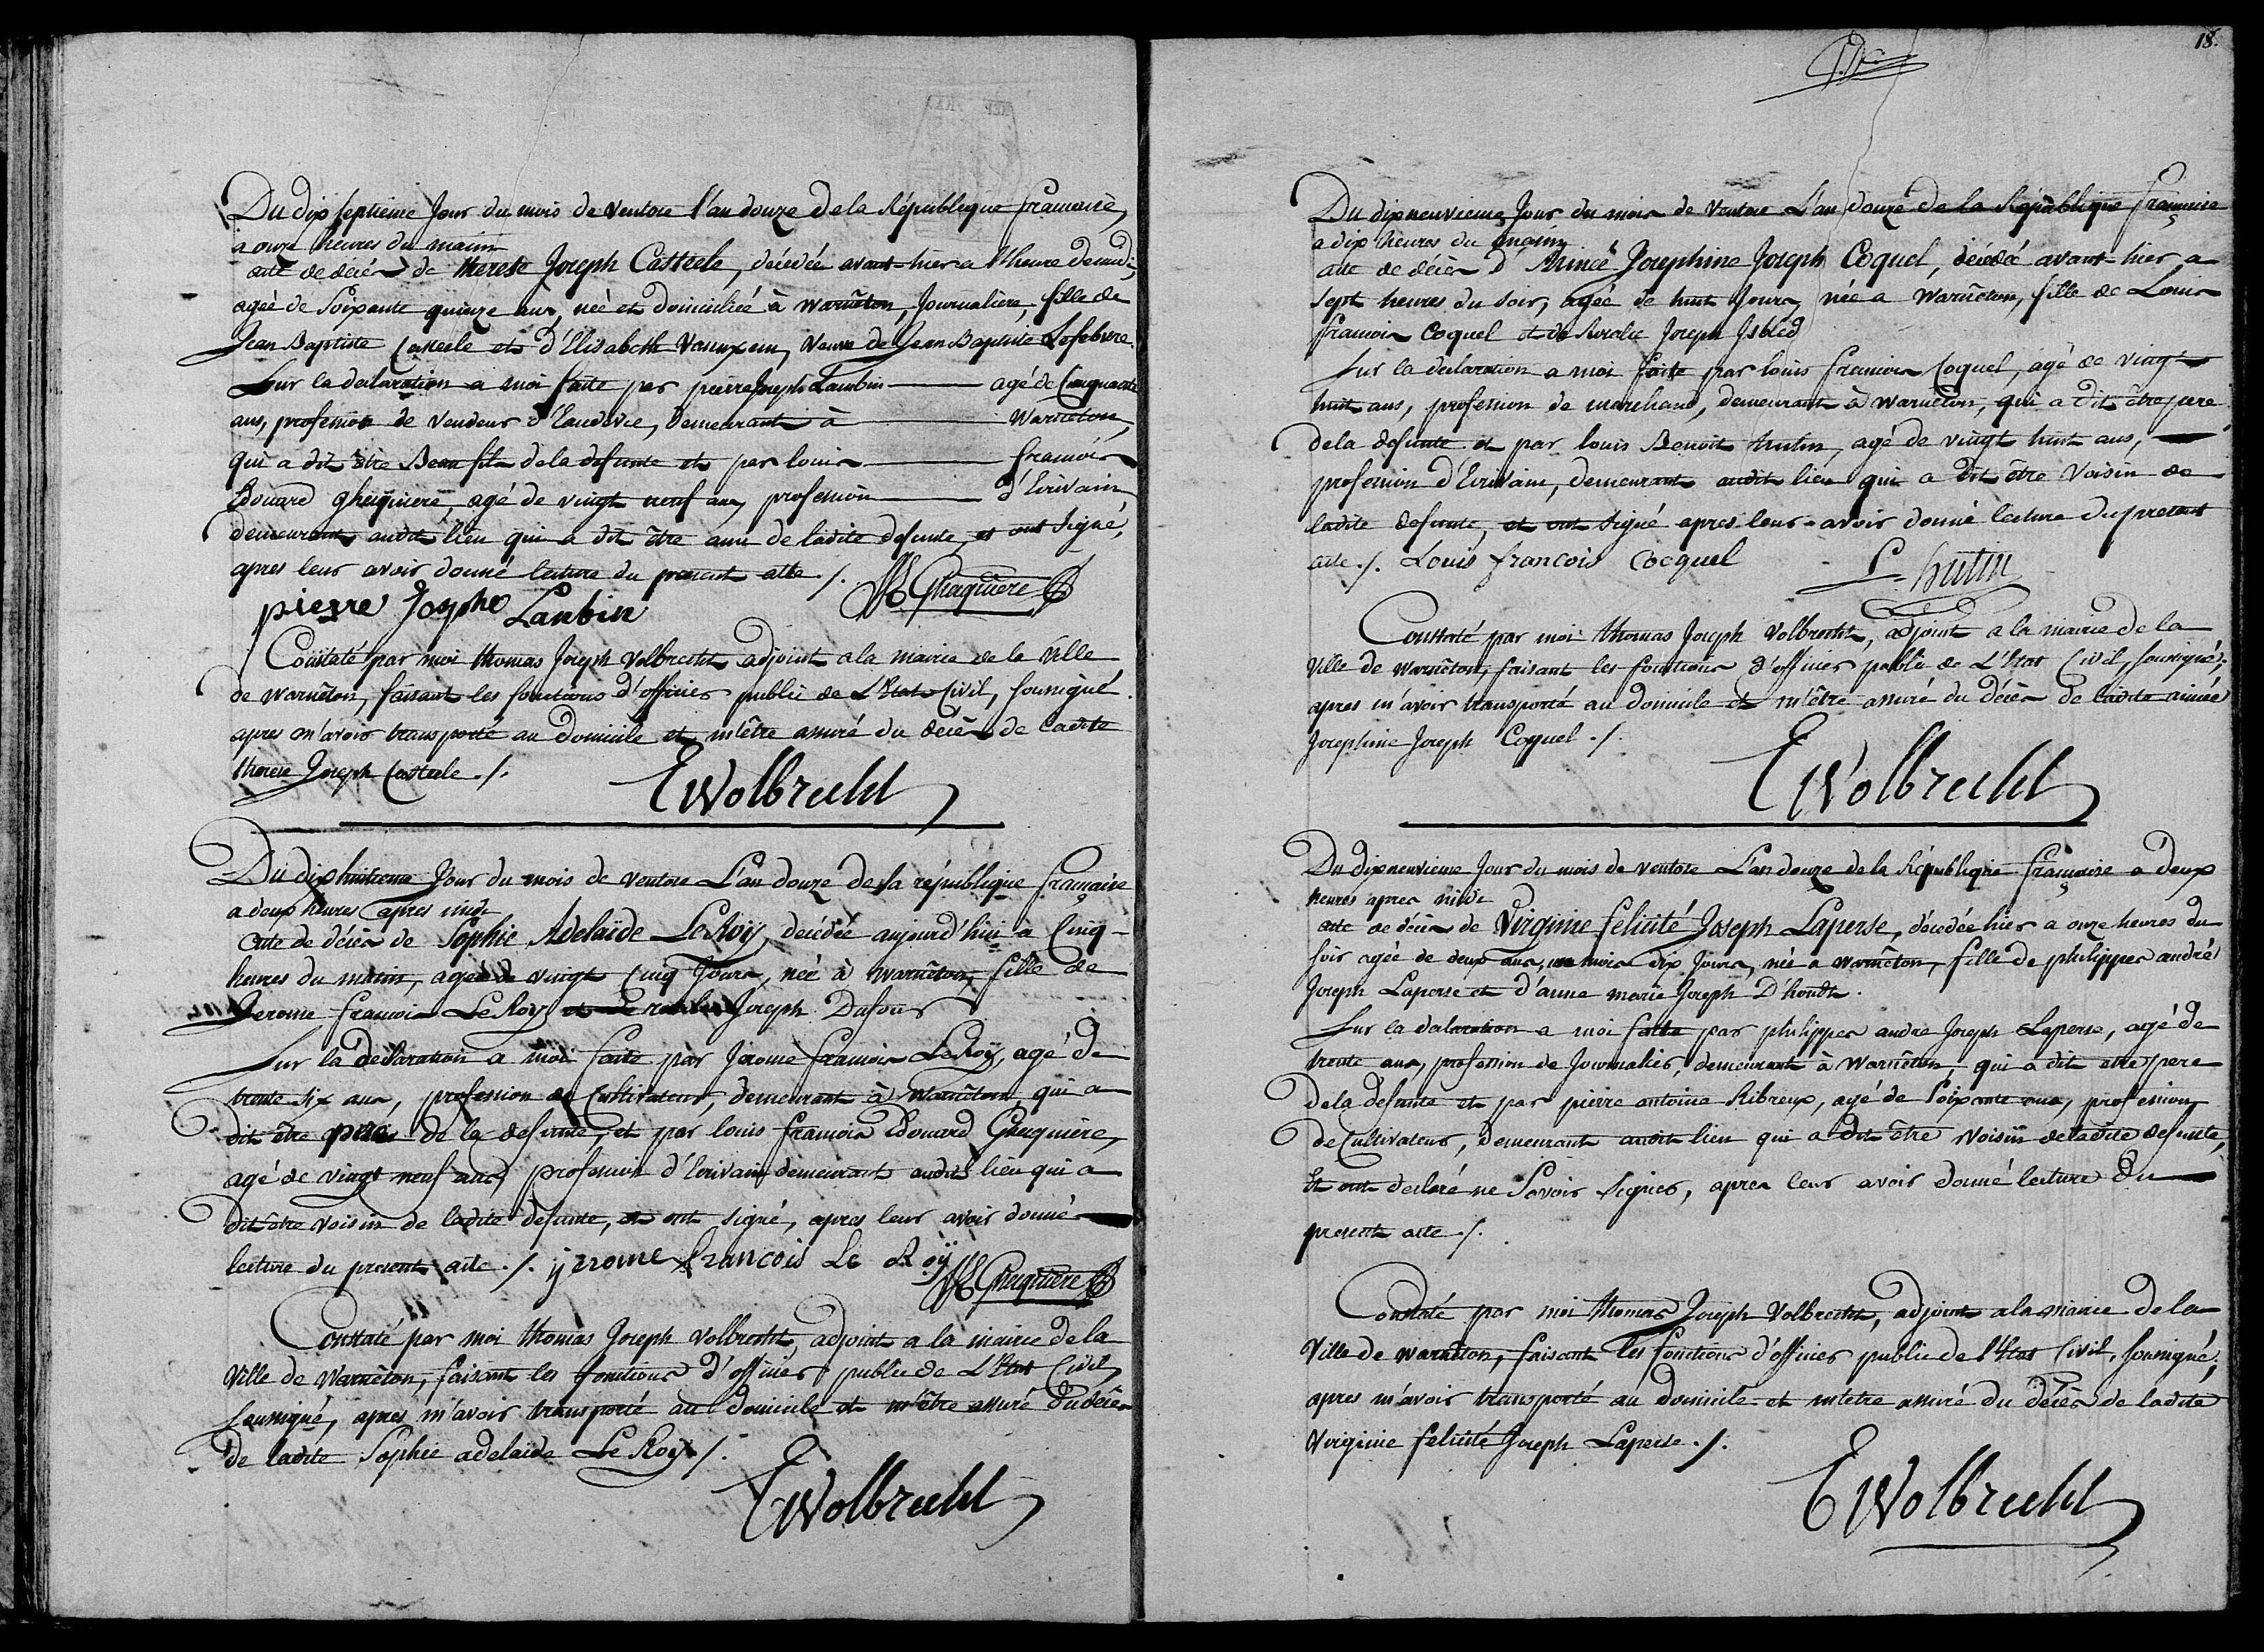 Du dix septieme Jour du mois de ventose l'an douze de la République francaise,
a onze heures du matin
acte de décès de therese Joseph Casteele, décédée avant-hier a l'heure de midi,
agée de soixante quinze ans, née et domiciliée à Warnêton, Journalière, fille de
Jean Baptiste Casteele et d'Elisabeth, veuve de Jean Baptiste Lefebvre.
Sur la declaration a moi faite par pierre Joseph Lambin agé de Cinquante
ans, profession de vendeur d'Eaudevie, demeurant à Warneton,
qui a dit être Beau fils de la defunte et par louis francois
Edouard ghequiere, agé de vingt neuf ans, profession d'Ecrivain
demeurant audit lieu qui a dit être ami de ladite defunte, et ont signé,
apres leur avoir donné lecture du present acte ./.
pierre Josphe Lanbin Ghequiere
Constaté par moi thomas Joseph Volbrecht adjoint a la mairie de la Ville
de warnêton, faisant les fonctions d'officier public de L'Etat Civil, soussigné.
apres m'avoir transporté au domicile et m'être assuré du décès de ladite
therese Joseph Casteele ./.
Wolbrecht
Du dix huitieme Jour du mois de ventose L'an douze de la république française
a deux heures apres midi
acte de décès de Sophie Adelaïde LeRoÿ, décédée aujourd'hui à Cinq
heures du matin, agée de vingt Cinq Jours, née à warnêton, fille de
Jerome francois LeRoy et Joseph Dufour
Sur la declaration a moi faite par Jerome francois LeRoÿ, agé de
trente six ans, profession de Cultivateur, demeurant à Warnêton, qui a
dit être pere de la defunte, et par louis francois Edouard Ghequière,
agé de vingt neuf ans, profession d'Ecrivain demeurant audit lieu qui a
dit être voisin de ladite defunte, et ont signé, apres leur avoir donné
lecture du present acte ./. ÿerome francois Le Roÿ
Ghequiere
Constaté par moi thomas Joseph Volbrecht, adjoint a la mairie de la
Ville de Warnêton, faisant les fonctions d'officier public de L'Etat Civil,
soussigné, apres m'avoir transporté au domicile et m'être assuré du décès
de ladite Sophie adelaide LeRoy ./.
Wolbrecht
18.
Du dix neuvieme Jour du mois de Ventose L'an douze de la République française
a dix heures du matin
acte de décès d'Aimée Josephine Joseph Coquel, décédée avant-hier a
sept heures du soir, agée de huit Jours, née a Warnêton, fille de Louis
francois Coquel et de Aurelie Joseph Isbled
Sur la declaration a moi faite par louis francois Coquel, agé de vingt
huit ans, profession de marchand, demeurant à warnêton, qui a dit être pere
de la defunte et par louis Benoit hutin, agé de vingt huit ans,
profession d'Ecrivain, demeurant audit lieu qui a dit être voisin de
ladite defunte, et ont signé apres leur avoir donné lecture du present
acte ./. Louis francois Cocquel L. hutin
Constaté par moi thomas Joseph Volbrecht, adjoint a la mairie de la
Ville de Warnêton, faisant les fonctions d'officier public de L'Etat Civil, soussigné,
apres m'avoir transporté au domicile et m'être assuré du décès de ladite aimée
Josephine Joseph Coquel ./.
Wolbrecht
Du dix neuvieme Jour du mois de ventose L'an douze de la République française a deux
heures apres midi
acte de décès de Virginie felicité Joseph Laperse, décedée hier a onze heures du
soir agée de deux ans, un mois dix Jours, née a warnêton, fille de philippes andré
Joseph Laperse et d'anne marie Joseph D'hondt.
Sur la declaration a moi faite par philippes andre Joseph Laperse, agé de
trente ans, profession de Journalier, demeurant à Warnêton, qui a dit etre pere
de la defunte et par pierre antoine Ribreux, agé de soixante ans, profession
de Cultivateur, demeurant audit lieu qui a dit être voisin de ladite defunte,
Et ont declaré ne savoir signer, apres leur avoir donné lecture du
present acte ./.
Constaté par moi thomas Joseph Volbrecht, adjoint a la mairie de la
Ville de warnêton, faisant les fonctions d'officier public de l'Etat Civil, soussigné,
apres m'avoir transporté au domicile et m'etre assuré du décès de ladite
Virginie felicité Joseph Laperse ./.
Wolbrecht